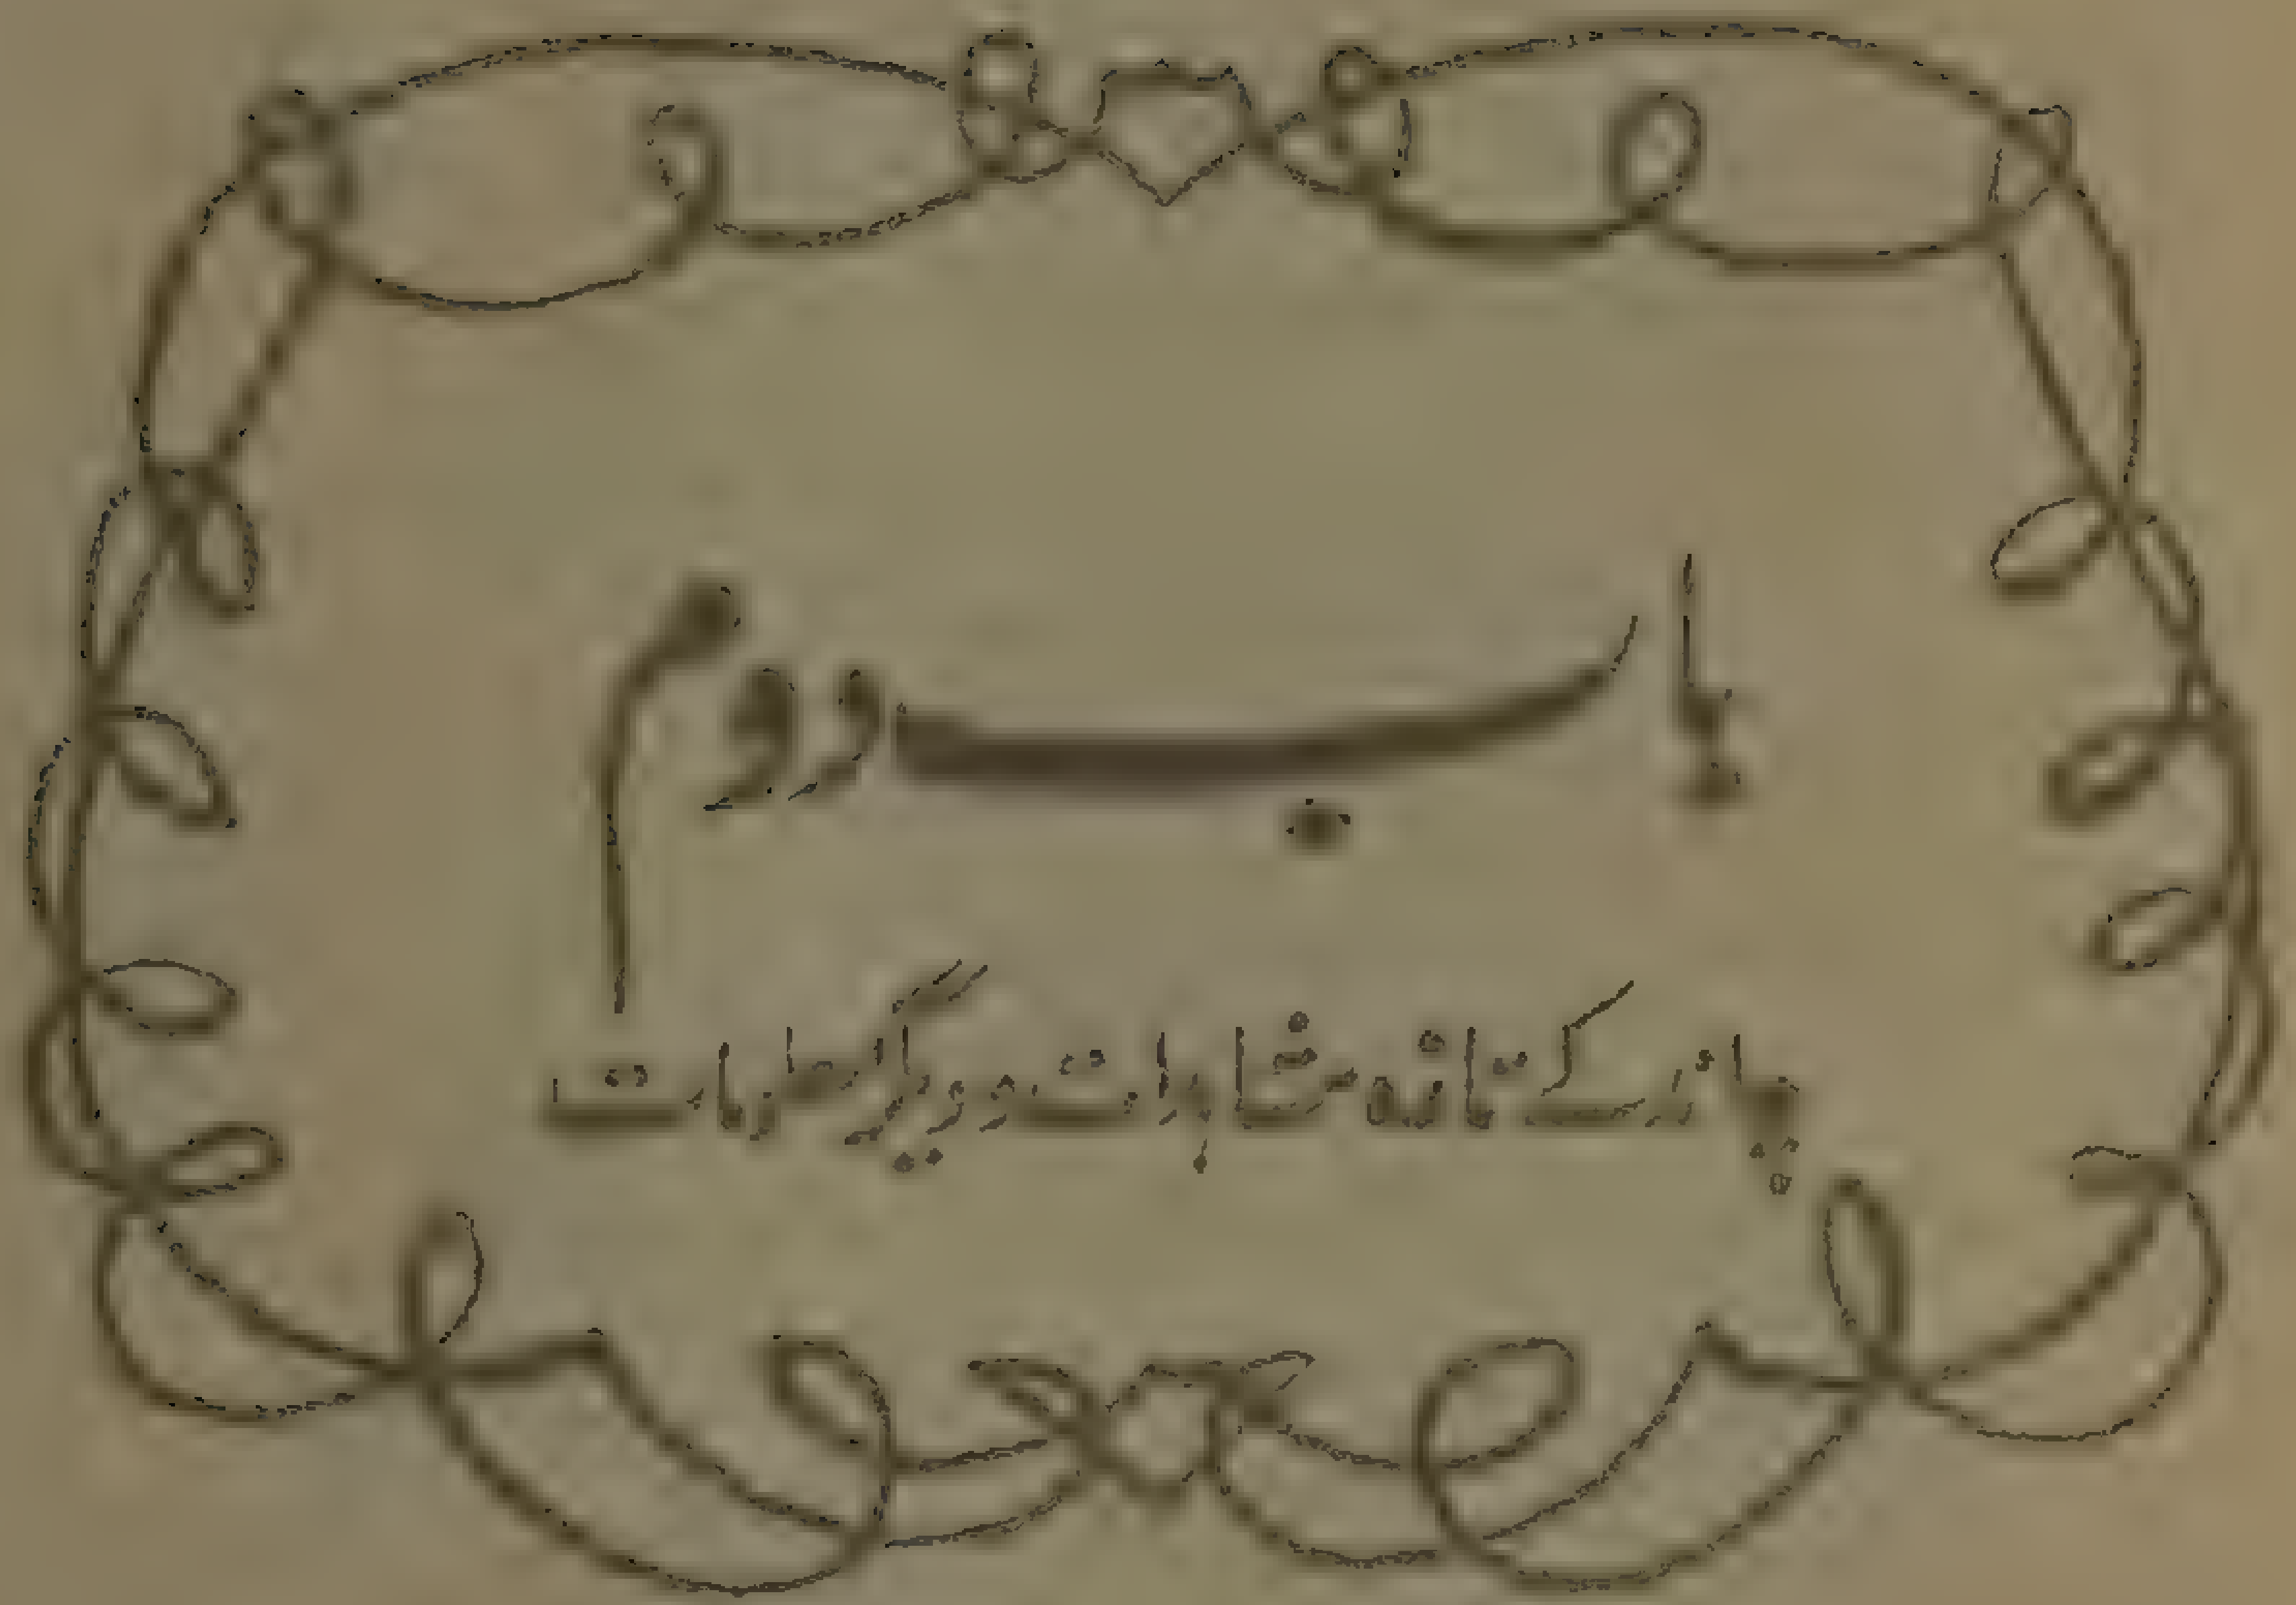 باب دوم
چاند کے تازہ مشاہدات و دیگر نظریات